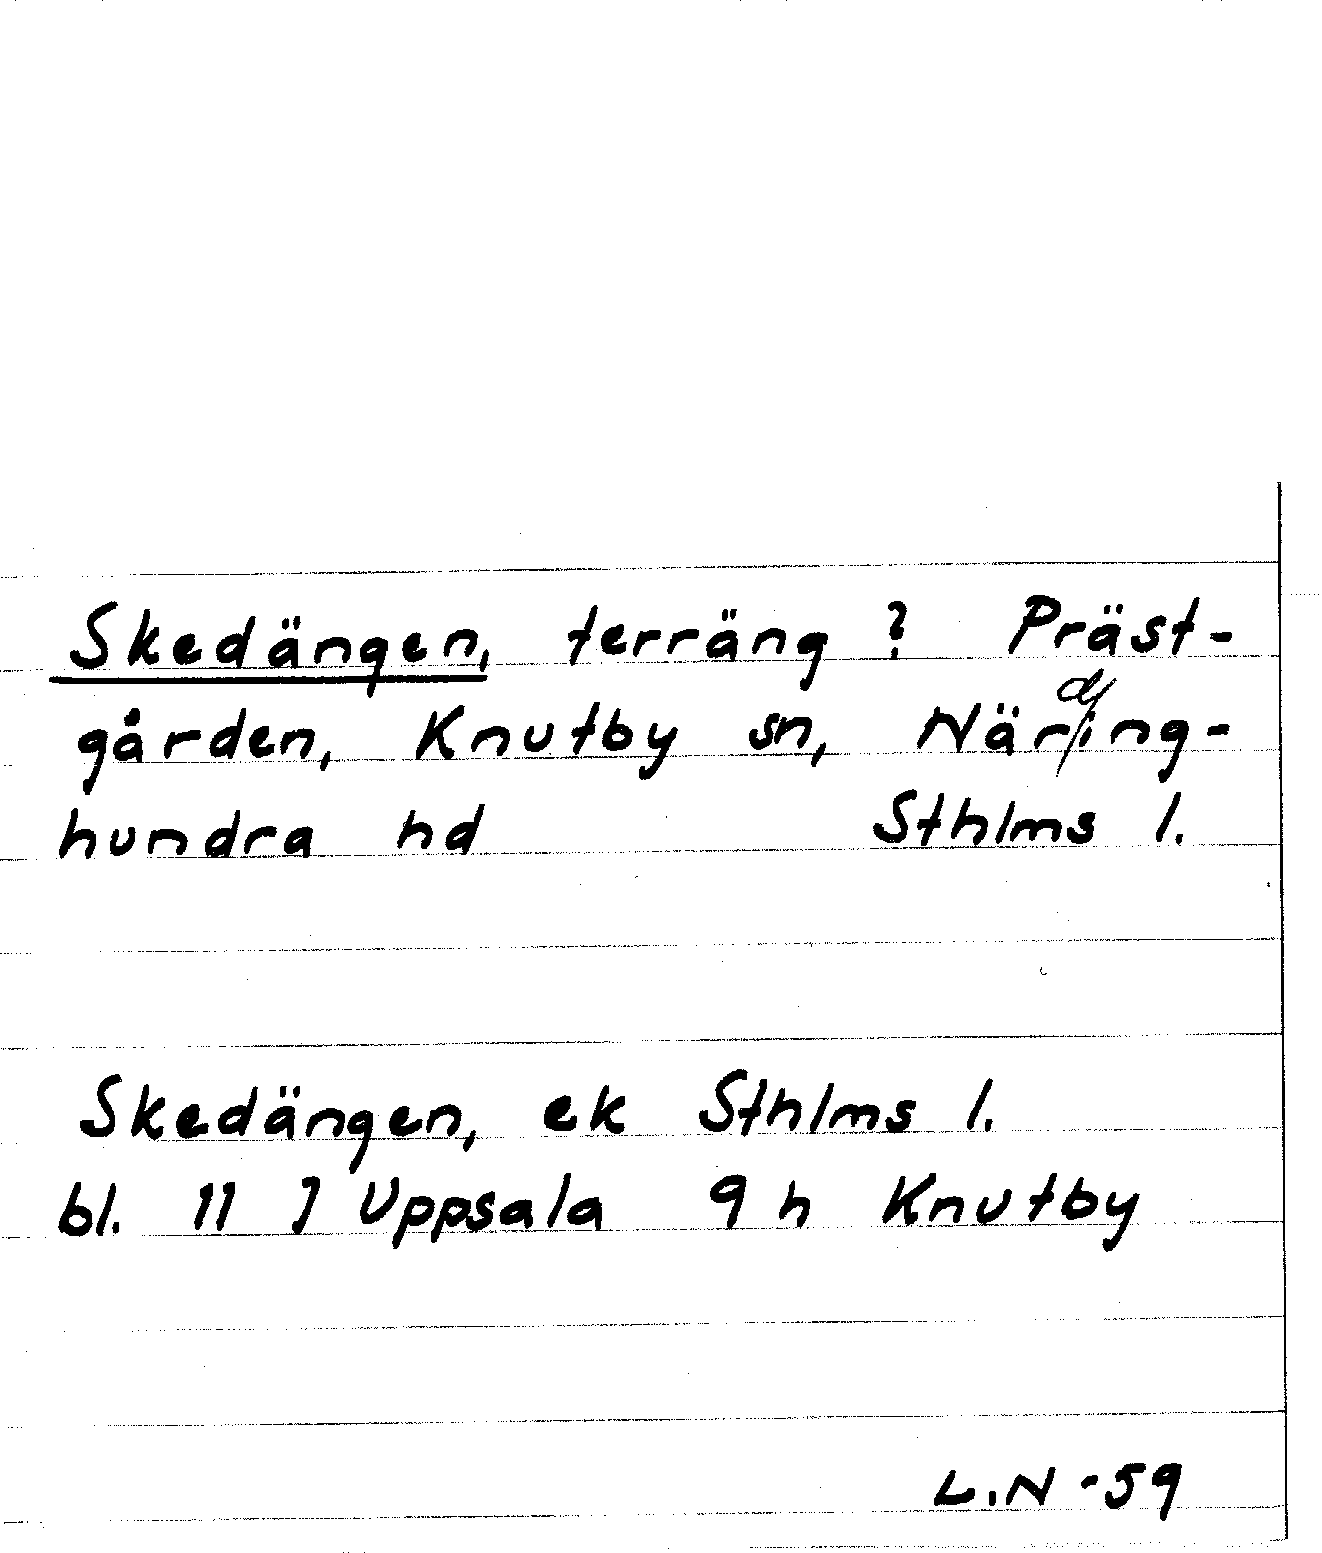 Skedängen, terräng ? Präst-
gården, Knutby sn, Närding-
hundra hd Sthlms l.
Skedängen, ek Sthlms l.
bl. 11 J Uppsala 9 h Knutby
L.N -59